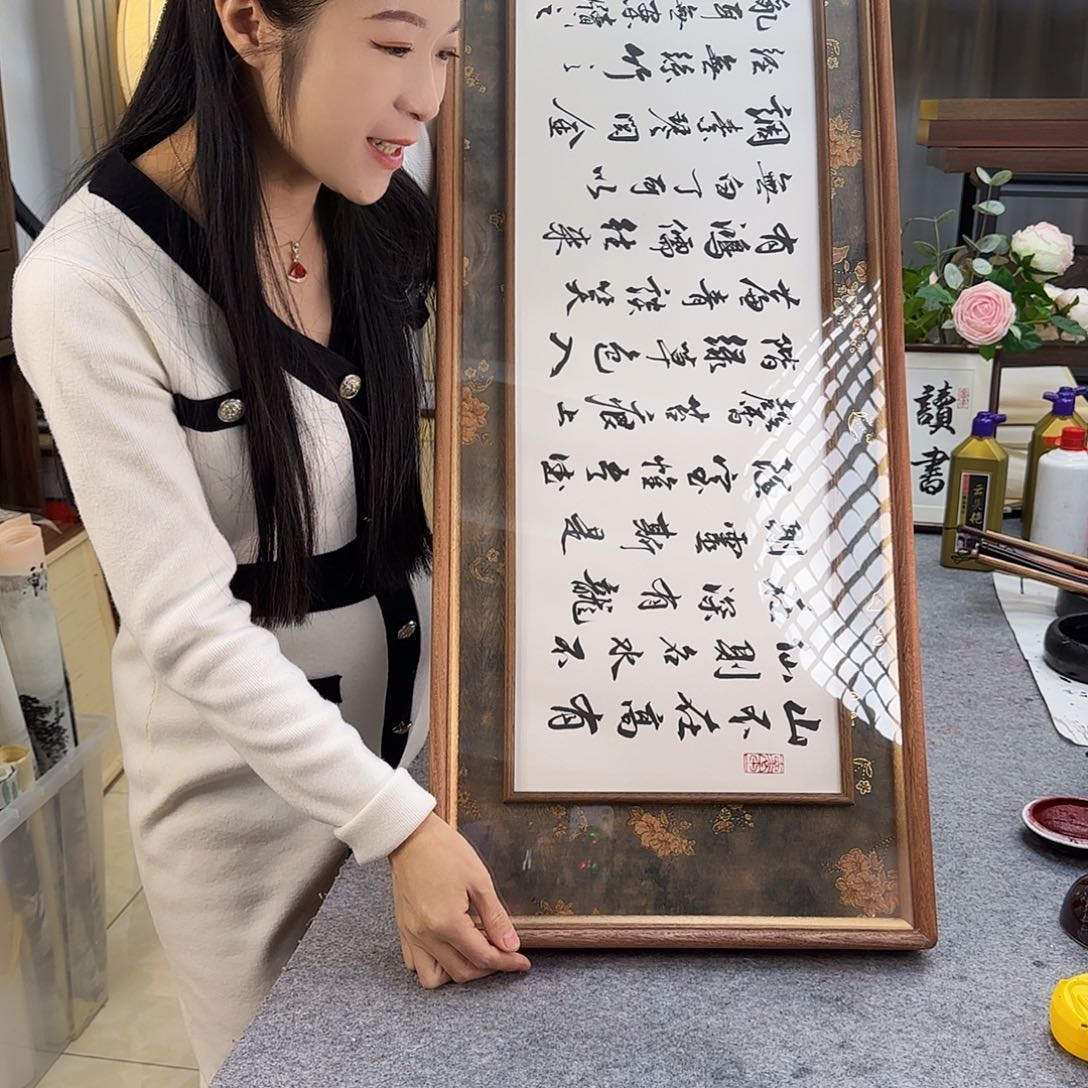 山不在高有
仙則名水不
在深有龍
則靈斯是
陋室惟吾德
馨苔痕上
階綠草色入
簾青談笑
有鴻儒往來
無白丁可以
調素琴閱金
經無絲竹之
亂耳無案牘之
讀書
云头艳